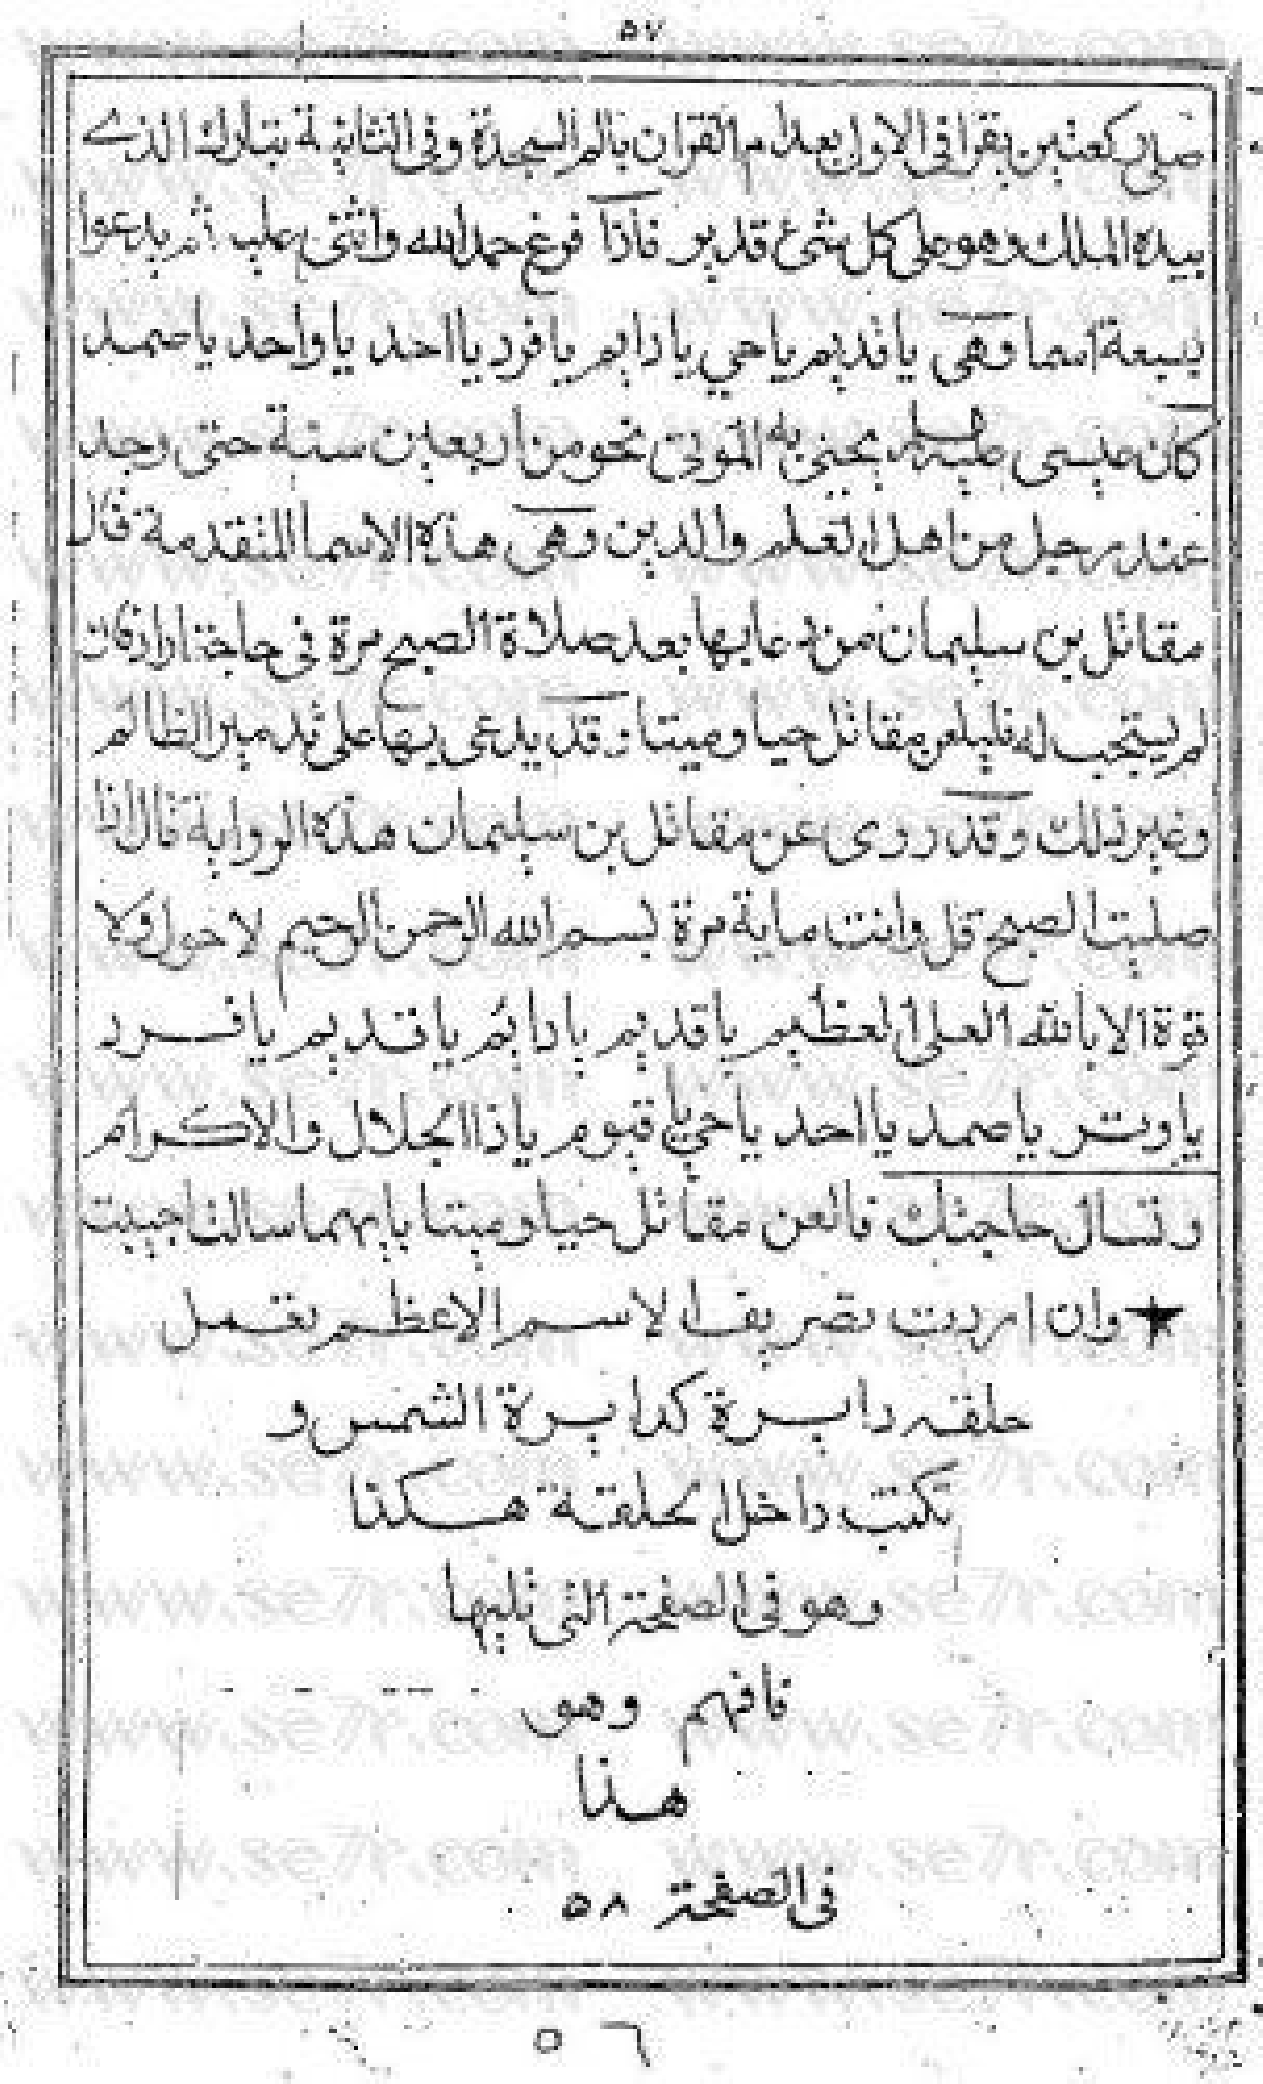 ٥٧
صلى ركعتين يقرا فى الاولى بعد ام القران بالم السجدة وفى الثانية تبارك الذى
بيده الملك وهو على كل شئ قدير فاذا فرغ حمد الله واثنى عليه ثم يدعوا
بسبعة اسما وهى يا قديم يا حي يا دايم يا فرد يا احد يا واحد يا صمد
كان عيسى عليه السلام يحيى به الموتى نحو من اربعين سنة حتى وجد
عند رجل من اهل العلم والدين وهى هذه الاسما المتقدمة قال
مقاتل بن سليمان من دعا بها بعد صلاة الصبح مرة فى حاجة اراد فان
لم يستجب له فليلعن مقاتل حيا وميتا وقد يدعى بها على تدمير الظالم
وغير ذلك وقد روى عن مقاتل بن سليمان هذه الرواية قال اذا
صليت الصبح قل وانت ماية مرة بسم الله الرحمن الرحيم لا حول ولا
قوة الا بالله العلى العظيم يا قديم يا دايم يا قديم يا فرد
يا وتر يا صمد يا احد يا حي يا قيوم يا ذا الجلال والاكرام
وتسال حاجتك فالعن مقاتل حيا وميتا بايهما سالت اجيبت
وان اردت تصريف الاسم الاعظم تعمل
حلقه دايرة كدايرة الشمس و
تكتب داخل الحلقة هكذا
وهو فى الصفحة التى تليها
فافهم وهو
هذا
فى الصفحة ٥٨
٥٦
www.se7r.com